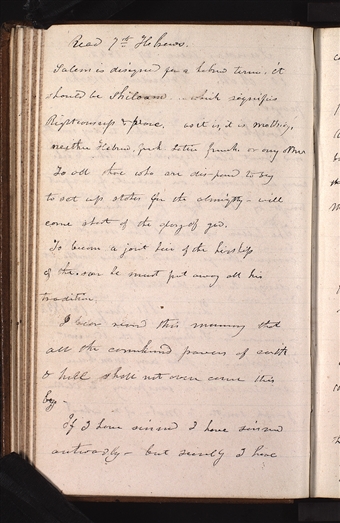 Read 7th Hebrews.
Salem is designed for a hebrew term. it
should be Shiloam.. which signifies
Righteousness & peace, as it is, it is nothing,
neither Hebrew, Greek Latin french, or any other
To all those who are disposed to say
to set up stakes for the almighty – will
come short of the glory of god.
To become a joint heir of the heirship
of the son he must put away all his
tradition.
I bear record this morning that
all the combined powers of earth
& hell shall not over come this
boy –
If I have sinned I have sinned
outwardly – but surely I have